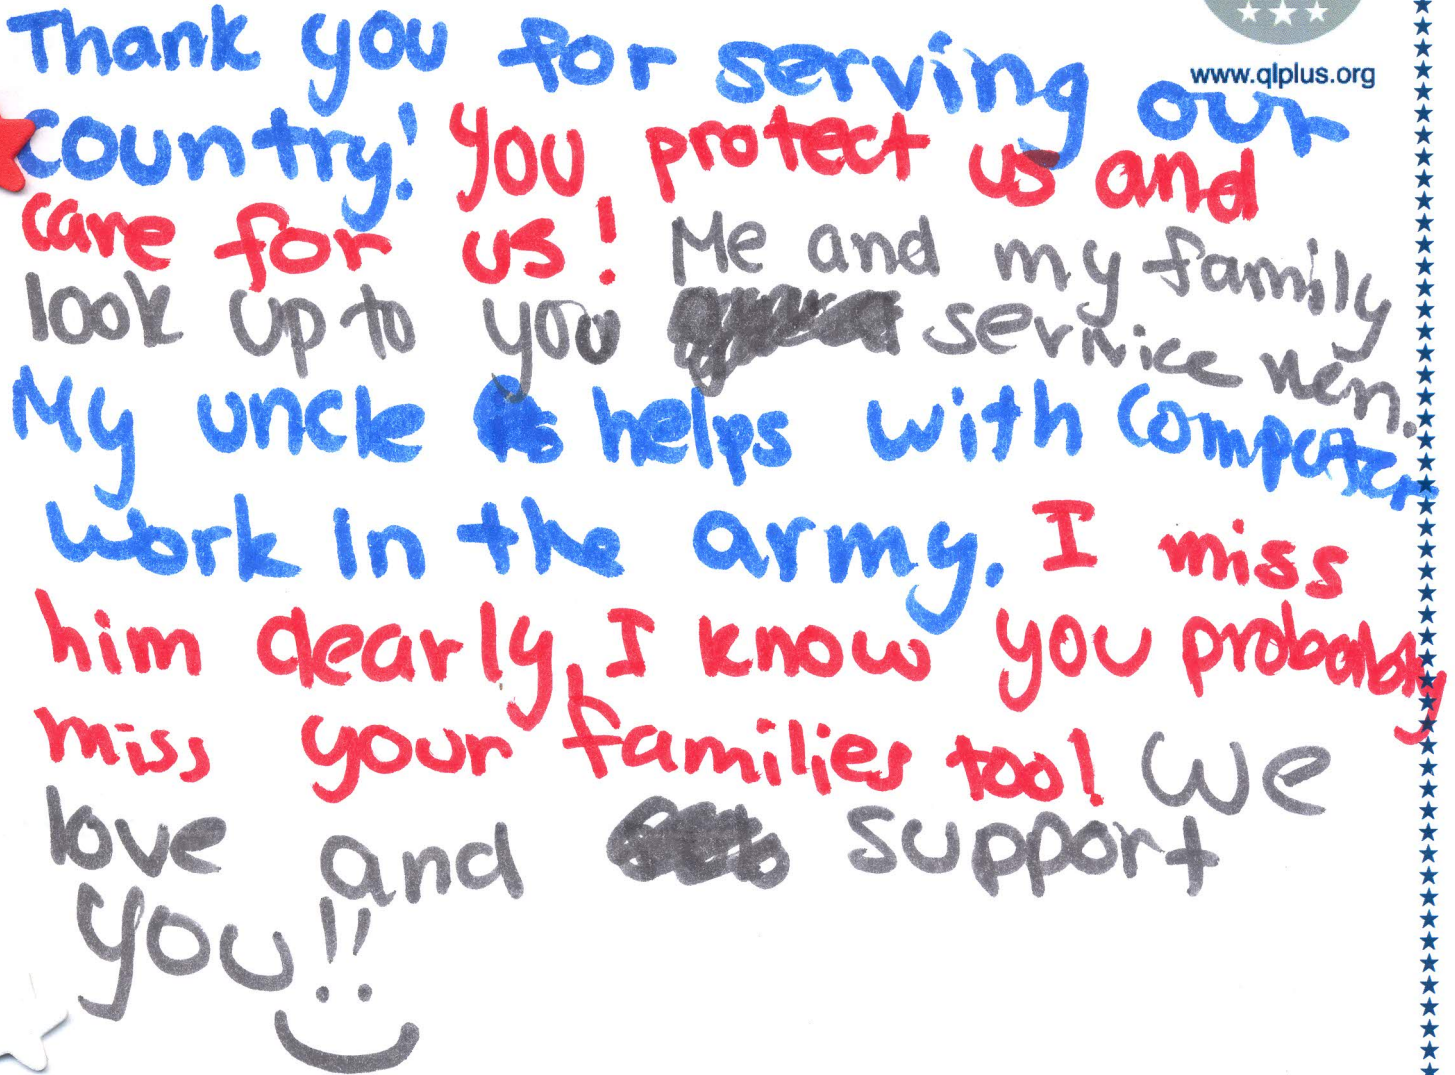 www.qlplus.org
Thank you for serving our
country! You protect us and
care for us! Me and my family
look up to you service men.
My uncle helps with computer
work in the army. I miss
him dearly, I know you probably
miss your families too! We
love and support
you!!